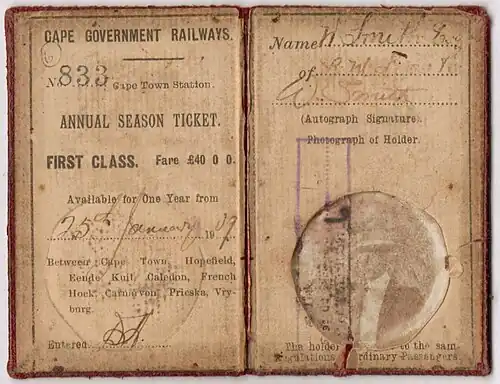 CAPE GOVERNMENT RAILWAYS.
6
No. 833 Cape Town Station.
ANNUAL SEASON TICKET.
FIRST CLASS. Fare £40 0 0.
Available for One Year from
25th January 1907
Between Cape Town, Hopefield,
Eende Kuil, Caledon, French
Hoek, Carnarvon, Prieska, Vry-
burg.
Entered
Name W. Smith
of
W Smith
(Autograph Signature).
Photograph of Holder.
The holder to the sam
Regulations ordinary Passengers.